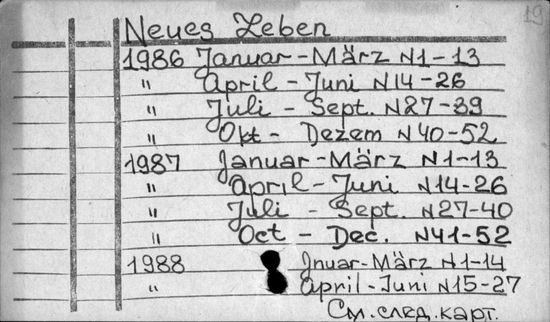 19
Neues Leben
1986 Januar - März N1-13
" April - Juni N14-26
" Juli - Sept. N27-39
" Okt - Dezem N40-52
1987 Januar - März N1-13
" April - Juni N14-26
" Juli - Sept. N27-40
" Oct - Dec. N41-52
1988 Jnuar-März N1-14
" April-Juni N15-27
См. след. карт.